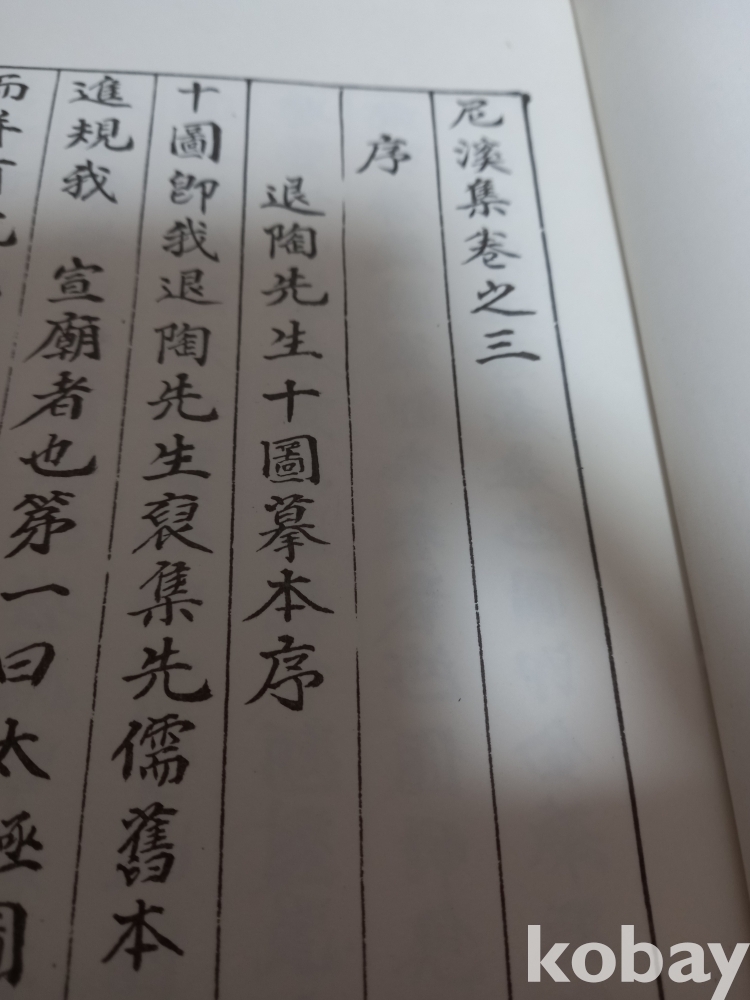 尼溪集卷之三
序
退陶先生十圖摹本序
十圖卽我退陶先生裒集先儒舊本
進規我 宣廟者也第一曰太極圖
而
kobay